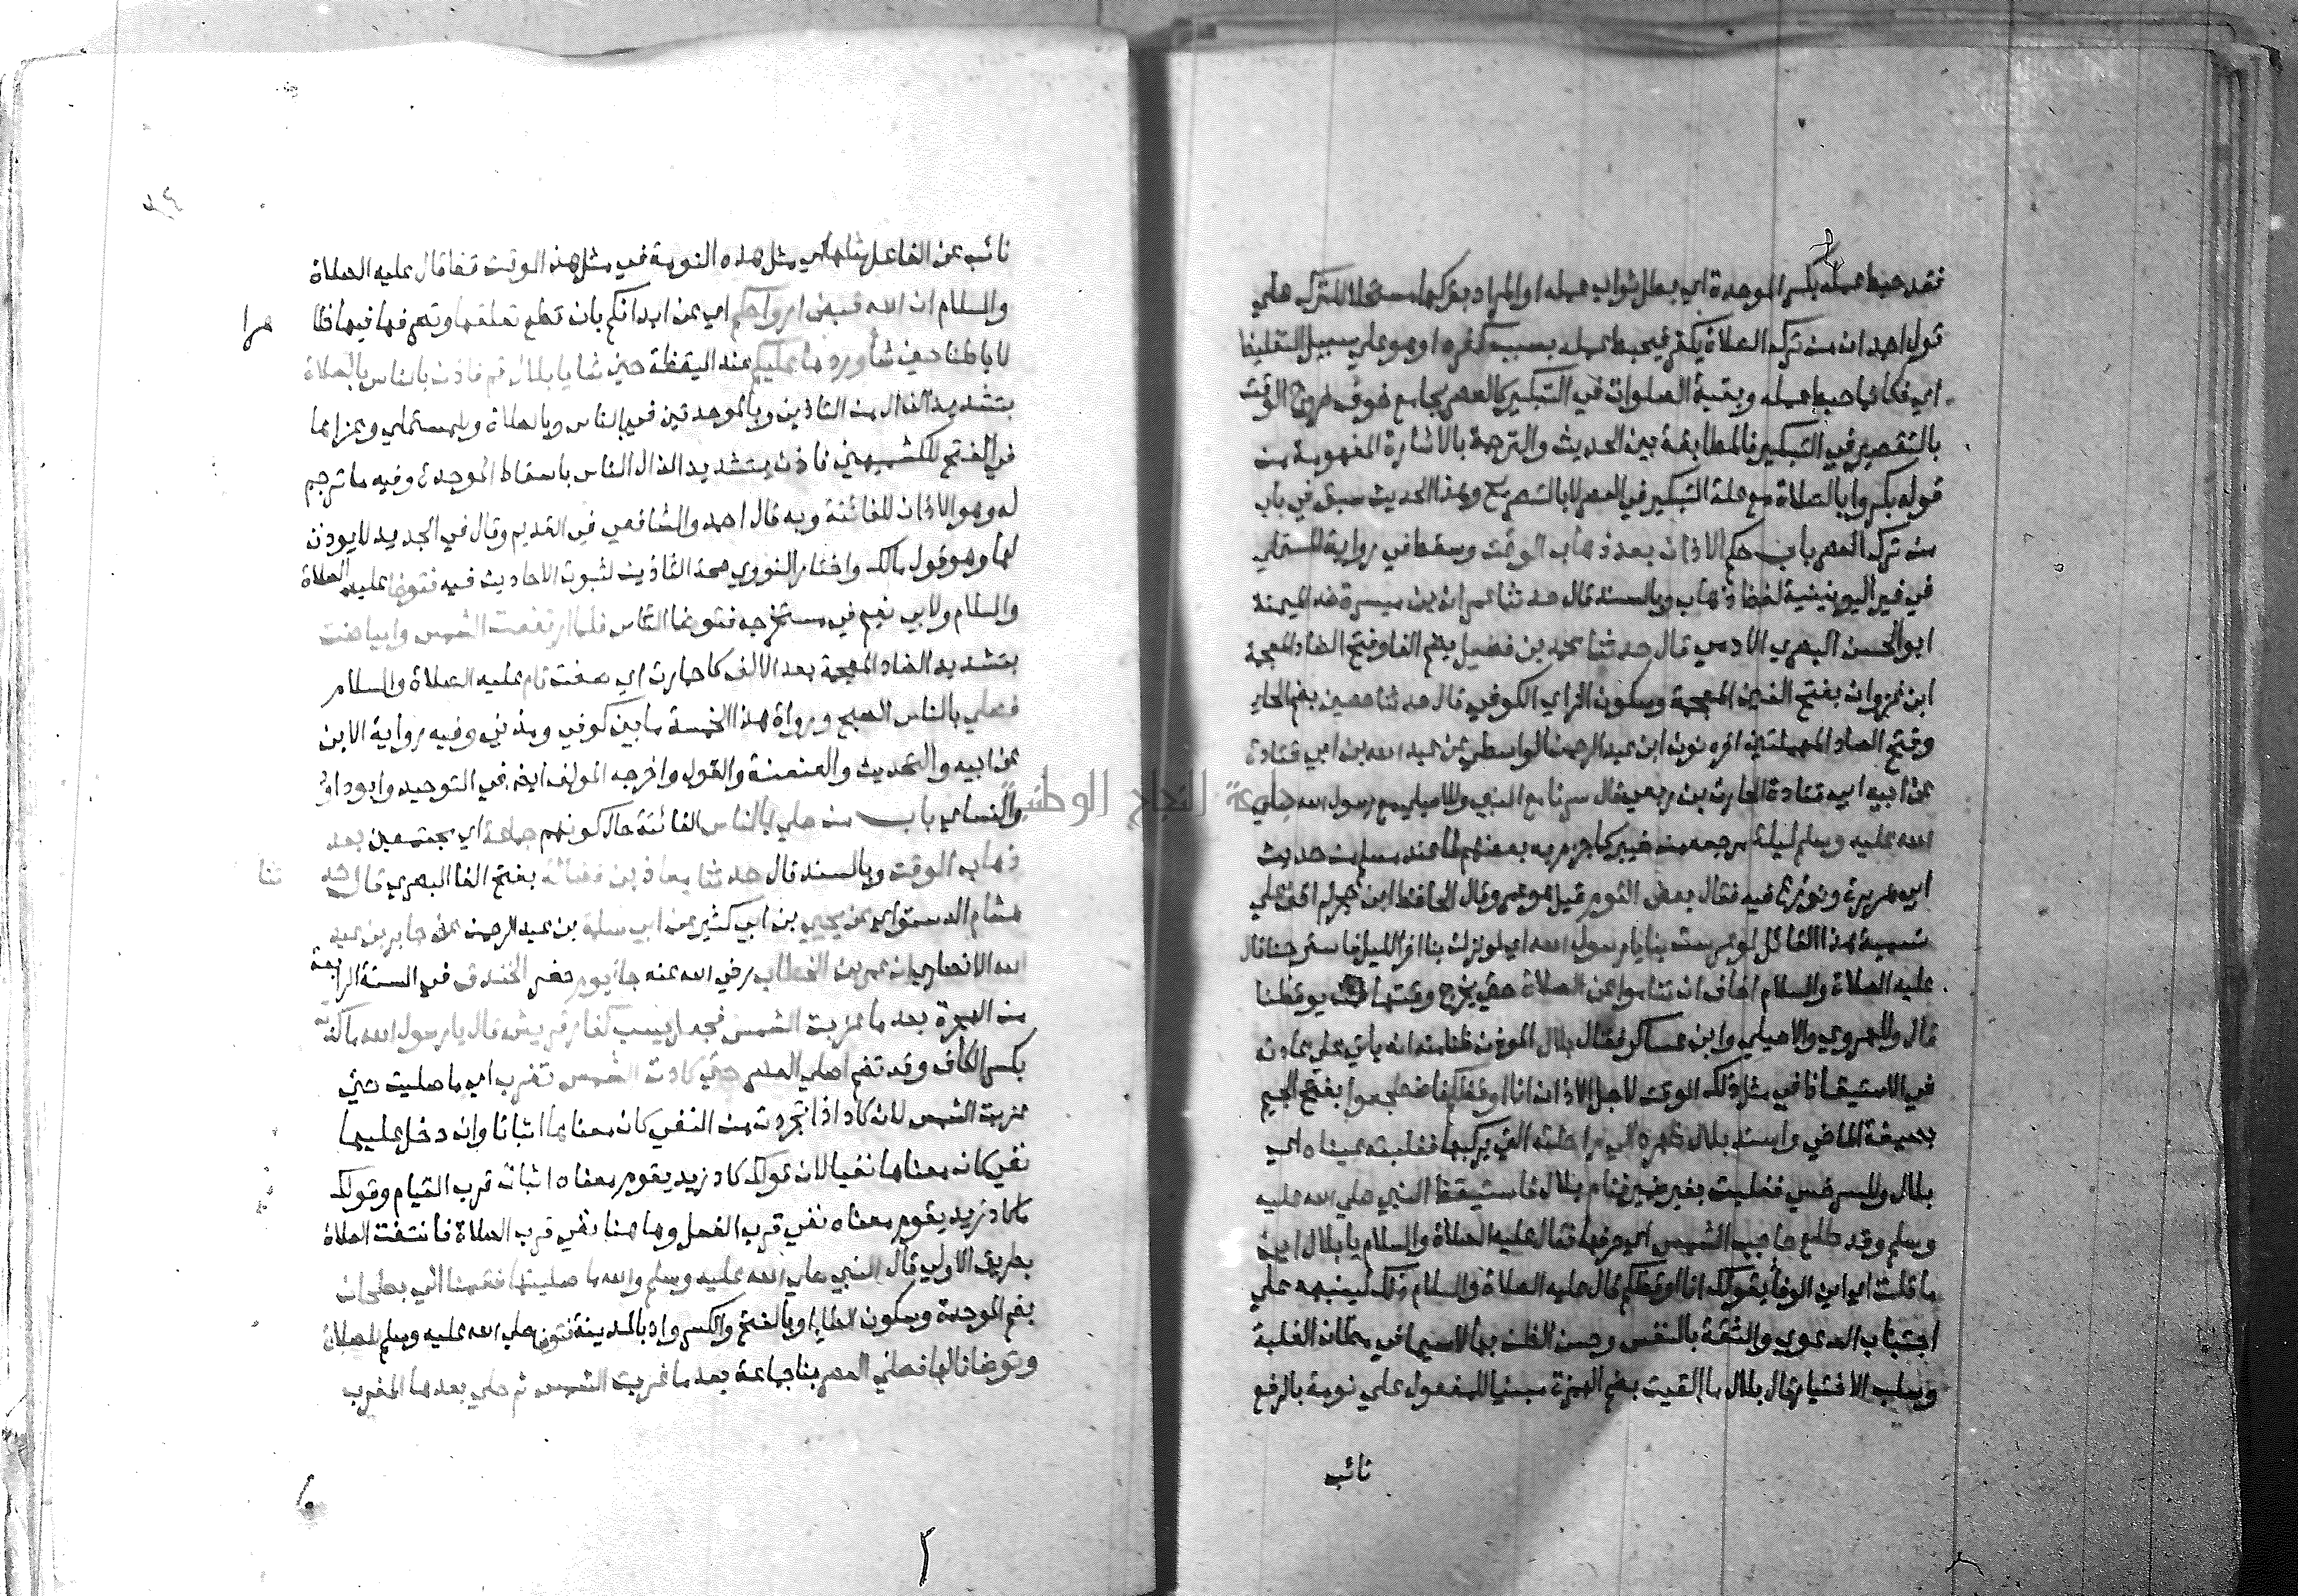 فقد حبط عمله بكسر الموحدة اي بطل ثواب عمله او المراد بتركها مستحلا للترك علي
قول احمد ان من ترك الصلاة يكفر فيحبط عمله بسبب كفره او هو علي سبيل التغليظ
اي فكانما حبط عمله وبقية الصلوات في التبكير كالعصر بجامع خوف خروج الوقت
بالتقصير في التبكير فالمطابقة بين الحديث والترجمة بالاشارة المفهومة من
قوله بكروا بالصلاة مع علة التبكير في العصر لا بالتصريح وهذا الحديث سبق في باب
من ترك العصر باب حكم الاذان بعد ذهاب الوقت وسقط في رواية المستملي
في غير اليونينية لفظ ذهاب وبالسند قال حدثنا عمران بن ميسرة ضد الميمنة
ابو الحسن البصري الادمي قال حدثنا محمد بن فضيل بضم الفا وفتح الضاد المعجمة
ابن غزوان بفتح الغين المعجمة وسكون الزاي الكوفي قال حدثنا حصين بضم الحا
وفتح الصاد المهملتين اخره نون ابن عبد الرحمن الواسطي عن عبد الله بن ابي قتادة
عن ابيه ابي قتادة الحارث بن ربعي قال سرنا مع النبي وللاصيلي مع رسول الله صلي
الله عليه وسلم ليلة مرجعه من خيبر كما جزم به بعضهم لما عند مسلم من حديث
ابي هريرة ونوزع فيه فقال بعض القوم قيل هو عمر وقال الحافظ ابن حجر لم اقف علي
تسمية هذا القائل لو عرست بنا يا رسول الله اي لو نزلت بنا اخر الليل فاسترحنا قال
عليه الصلاة والسلام اخاف ان تناموا عن الصلاة حتي يخرج وقتها فمن يوقظنا
قال وللهروي والاصيلي وابن عساكر فقال بلال الموذن ظنا منه انه ياتي علي عادته
في الاستيقاظ في مثل ذلك الوقت لاجل الاذان انا اوقظكم فاضطجعوا بفتح الجيم
بصيغة الماضي واسند بلال ظهره الي راحلته التي يركبها فغلبته عيناه اي
بلال وللسرخسي فغلبت بغير ضمير فنام بلال فاستيقظ النبي صلي الله عليه
وسلم وقد طلع حاجب الشمس اي حرفها فقال عليه الصلاة والسلام يا بلال اين
ما قلت اي اين الوفا بقولك انا اوقظكم قال عليه الصلاة والسلام ذلك لينبهه علي
اجتناب الدعوي والثقة بالنفس وحسن الظن بها لاسيما في مظان الغلبة
وسلب الاختيار قال بلال ما القيت بضم الهمزة مبنيا للمفعول علي نومة بالرفع
نائب
نائب عن الفاعل مثلها اي مثل هذه النومة في مثل هذا الوقت فقال عليه الصلاة
والسلام ان الله قبض ارواحكم اي عن ابدانكم بان قطع تعلقها وتصرفها فيها ظا
هرا
لا باطنا حين شا وردها عليكم عند اليقظة حين شا يا بلال قم فاذن بالناس بالصلاة
بتشديد الذال من التاذين وبالموحدتين في بالناس وبالصلاة وللمستملي وعزاها
في الفتح للكشميهني فاذن بتشديد الذال الناس باسقاط الموحدة وفيه ما ترجم
له وهو الاذان للفائتة وبه قال احمد والشافعي في القديم وقال في الجديد لا يوذن
لها وهو قول مالك واختار النووي صحة التاذين لثبوت الاحاديث فيه فتوضا عليه الصلاة
والسلام ولابي نعيم في مستخرجه فتوضا الناس فلما ارتفعت الشمس وابياضت
بتشديد الضاد المعجمة بعد الالف كاحمارت اي صفت قام عليه الصلاة والسلام
فصلي بالناس الصبح ورواة هذا الخمسة ما بين كوفي ومدني وفيه رواية الابن
عن ابيه والتحديث والعنعنة والقول واخرجه المولف ايضا في التوحيد وابو داود
والنساي باب من صلي بالناس الفائتة حال كونهم جماعة اي مجتمعين بعد
ذهاب الوقت وبالسند قال حدثنا معاذ بن فضالة بفتح الفا البصري قال حد
ثنا
هشام الدستواي عن يحيي بن ابي كثير عن ابي سلمة بن عبد الرحمن عن جابر بن عبد
الله الانصاري ان عمر بن الخطاب رضي الله عنه جا يوم حفر الخندق في السنة الرابعة
من الهجرة بعد ما غربت الشمس فجعل يسب كفار قريش قال يا رسول الله ما كدت
بكسر الكاف وقد تضم اصلي العصر حتي كادت الشمس تغرب اي ما صليت حتي
غربت الشمس لان كاد اذا تجردت من النفي كان معناها اثباتا وان دخل عليها
نفي كان معناها نفيا لان قولك كاد زيد يقوم معناه اثبات قرب القيام وقولك
ما كاد زيد يقوم معناه نفي قرب الفعل وها هنا نفي قرب الصلاة فانتفت الصلاة
بطريق الاولي قال النبي صلي الله عليه وسلم والله ما صليتها فقمنا الي بطحان
بضم الموحدة وسكون الطا او بالفتح والكسر واد بالمدينة فتوضا صلي الله عليه وسلم للصلاة
وتوضانا لها فصلي العصر بنا جماعة بعد ما غربت الشمس ثم صلي بعدها المغرب
جامعة النجاح الوطنية